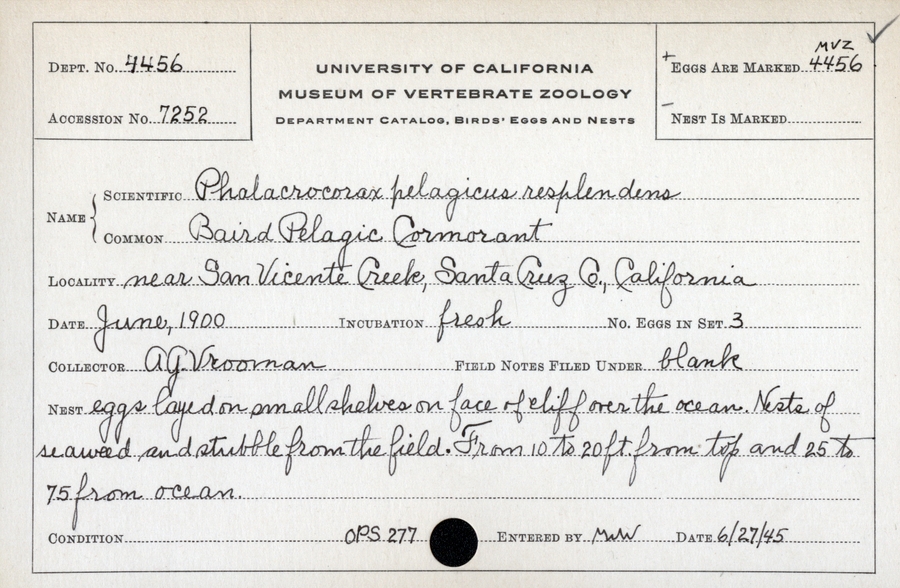 MVZ
DEPT. NO. 4456
UNIVERSITY OF CALIFORNIA
+ EGGS ARE MARKED 4456
MUSEUM OF VERTEBRATE ZOOLOGY
ACCESSION NO. 7252
DEPARTMENT CATALOG, BIRDS' EGGS AND NESTS
– NEST IS MARKED
NAME
SCIENTIFIC Phalacrocorax pelagicus resplendens
COMMON Baird Pelagic Cormorant
LOCALITY near San Vicente Creek, Santa Cruz Co., California
DATE June, 1900 INCUBATION fresh NO. EGGS IN SET 3
COLLECTOR A.G. Vrooman FIELD NOTES FILED UNDER blank
NEST eggs layed on small shelves on face of cliff over the ocean. Nests of
seaweed and stubble from the field. From 10 to 20 ft. from top and 25 to
75 from ocean.
CONDITION OPS 277 ENTERED BY MWW DATE 6/27/45